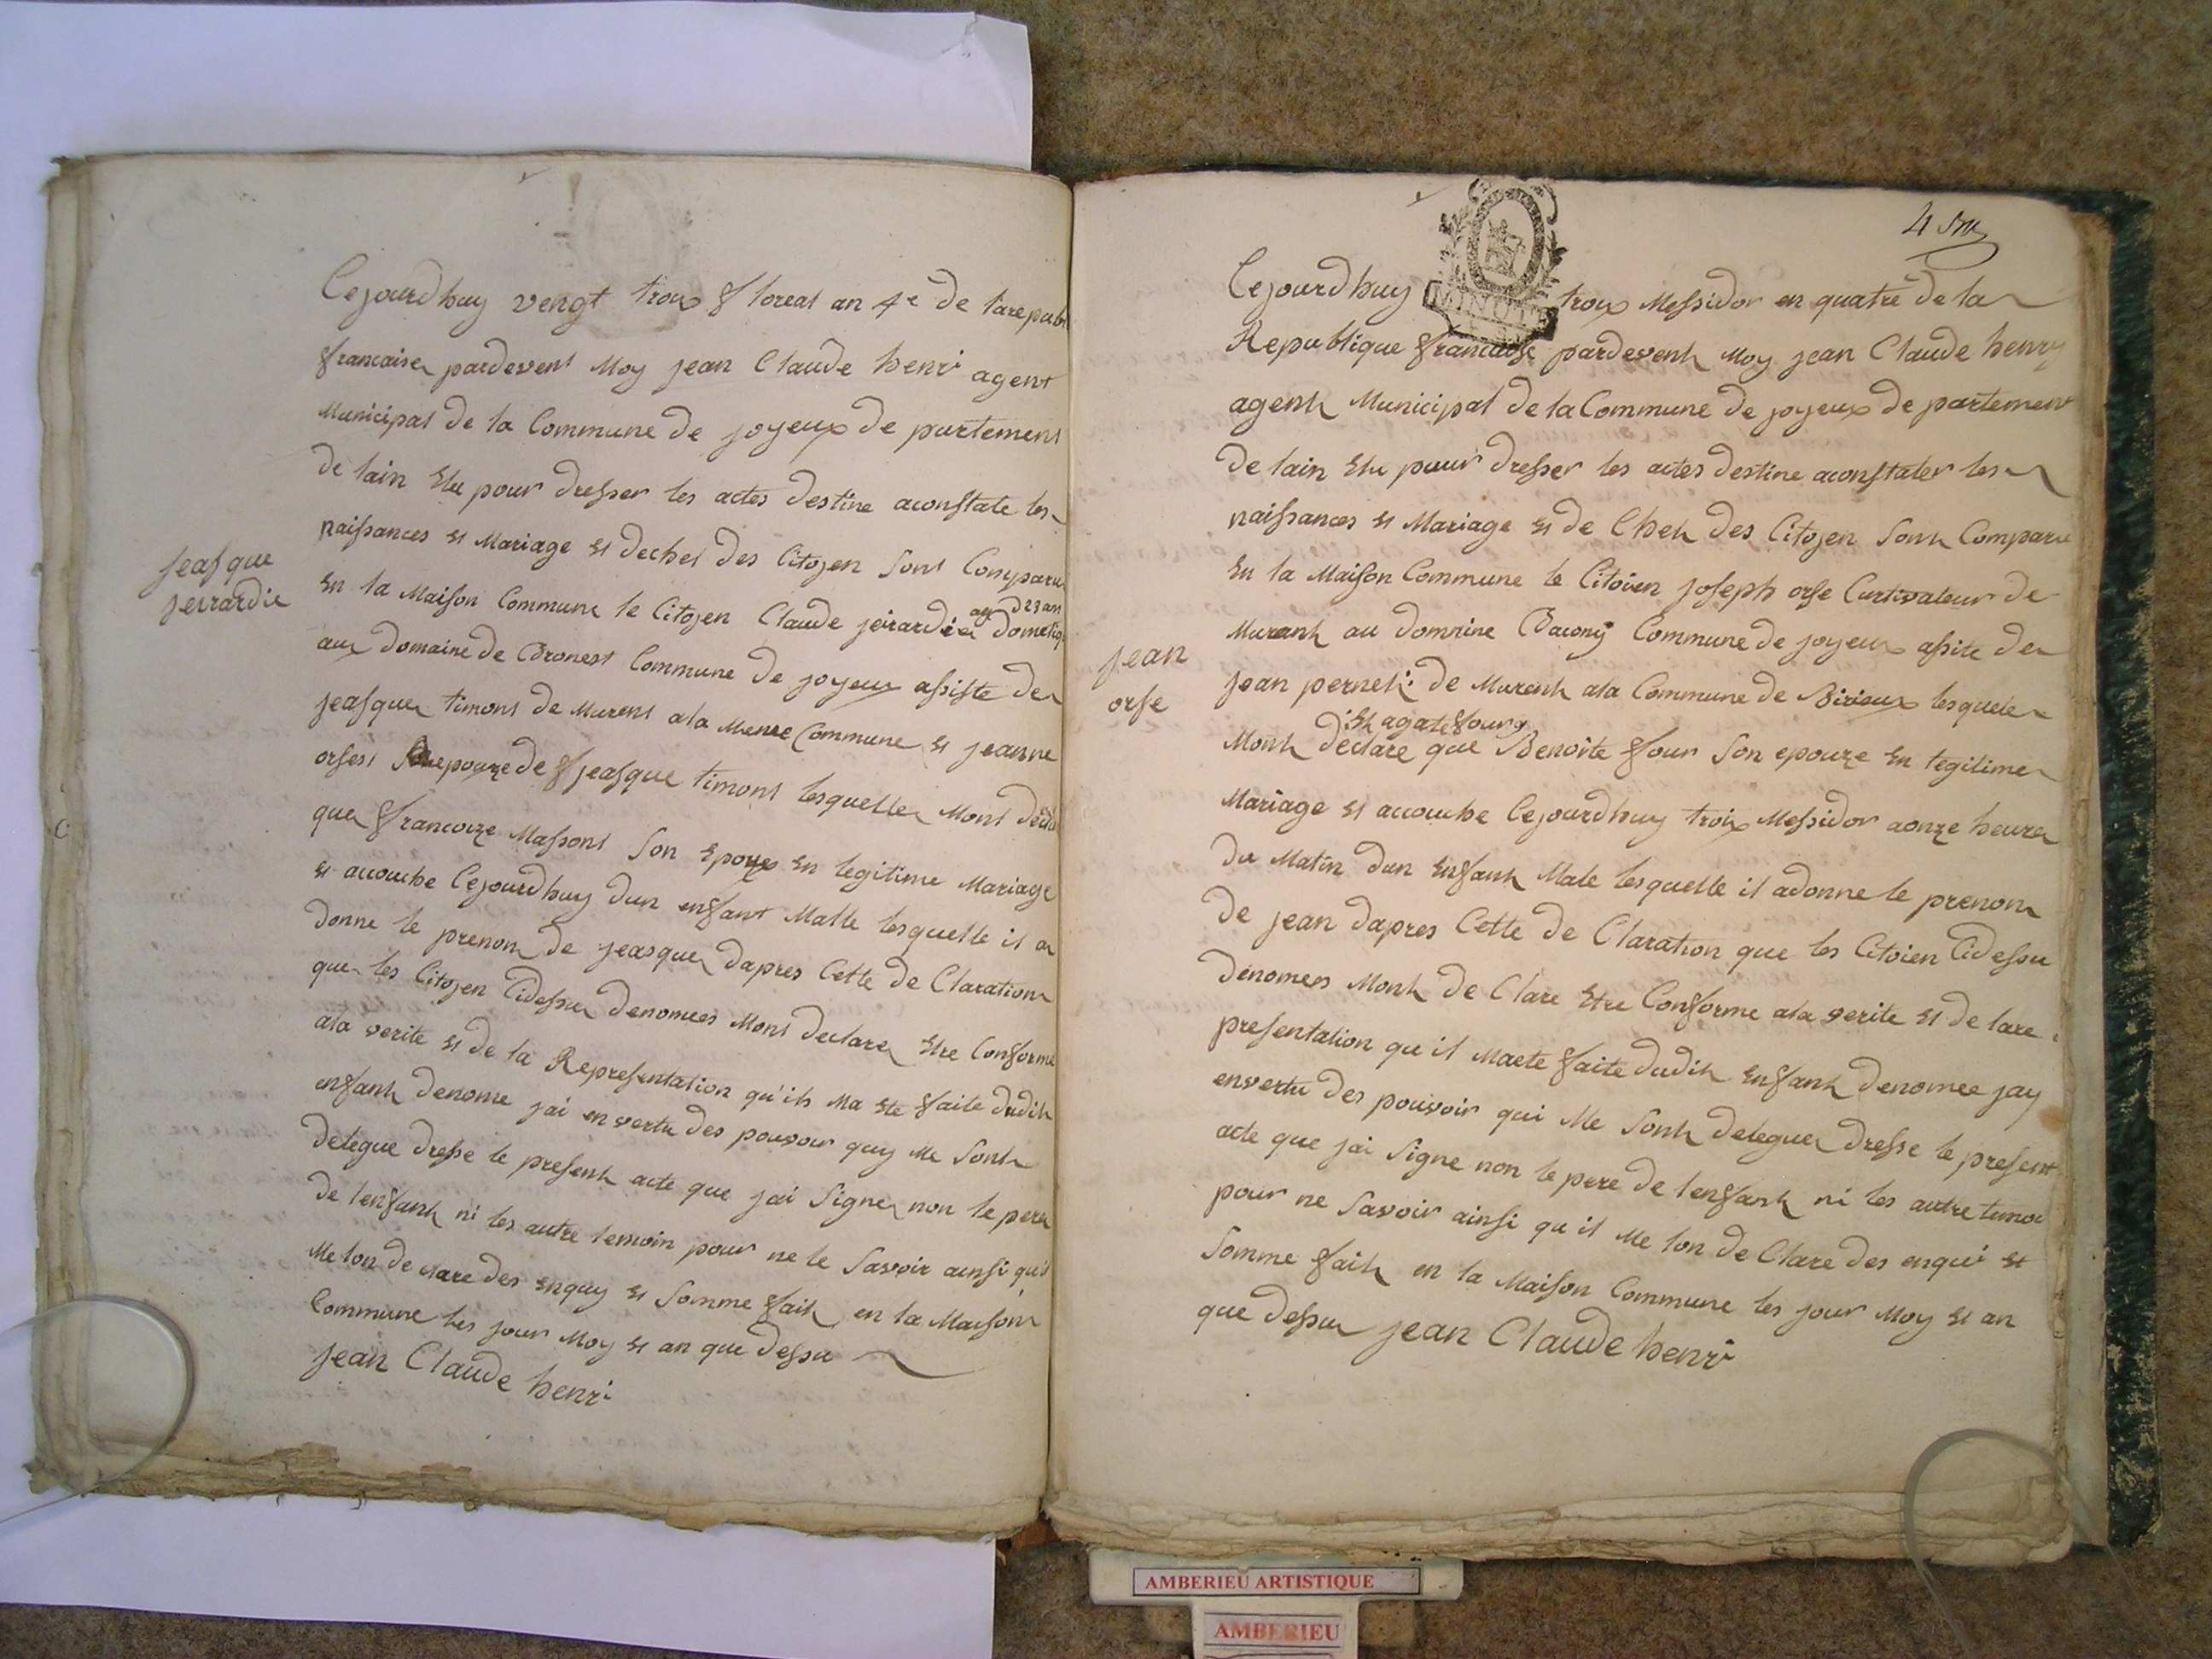 Cejourdhuy vengt troix floreal an 4e de larepub
francaise pardevent Moy jean Claude henri agent
Municipal de la Commune de joyeux de partement
de lain Elu pour dresser les actes destine aconstate les
naissances et Mariage et deches des Citoyen sont Comparu
jeasque
jeirardie
En la Maison Commune le Citoyen Claude jeirardie age d23 ans domestiq
aux Domaine de Bronest Commune de joyeux assiste de
jeasque timont de Murent ala Meme Commune et jeanne
orsest epouze de jeasque timont lesquelle Mont decla
que francoize Massont son Epouze En legitime Mariage
et accouche Cejourdhuy dun enfant Malle lesquelle il a
donne le prenom de jeasque dapres Cette de Claration
que les Citoyen Cidessu denomees Mont declare Etre Conforme
ala verite et de la Representation qu'ils Ma Ete faite dudit
enfant denome jai en vertu des pouvoir quy Me sont
delegue dresse le present acte que jai signe non le pere
de lenfant ni les autre temoin pour ne le savoir ainsi qu'il
Me lon de clare des enquy et somme fait en la Maison
Commune les jour Moy et an que dessu
jean Claude henri
4 sm
Cejourdhuy troix Messidor en quatre de la
MINUTE
Republique francaise pardevent Moy jean Claude henry
agent Municipal de la Commune de joyeux de partement
de lain Elu pour dresser les actes destine aconstater les
naissances et Mariage et de Chet des Citoyen sont Comparu
En la Maison Commune le Citoien joseph orse Curtivateur de
jean
orse
Murant au domaine Bacony Commune de joyeux assite de
jean pernet de Murent ala Commune de Birieux lesquele
Et agate four
Mont declare que Benoite four son epouze En legitime
Mariage et accouche Cejourdhuy troix Messidor aonze heure
du Matin dun Enfant Male lesquelle il adonne le prenom
de jean dapres Cette de Claration que les Citoien Cidessu
denomees Mont de Clare Etre Conforme ala verite et de lare
presentation qu il Maete faite dudit Enfant denomee jay
envertu des pouvoir qui Me sont delegue dresse le present
acte que jai signe non le pere de lenfant ni les autre temoi
pour ne savoir ainsi qu il Me lon de Clare des enqui et
somme fait en la Maison Commune les jour Moy et an
que dessu jean Claude henri
AMBERIEU ARTISTIQUE
AMBERIEU